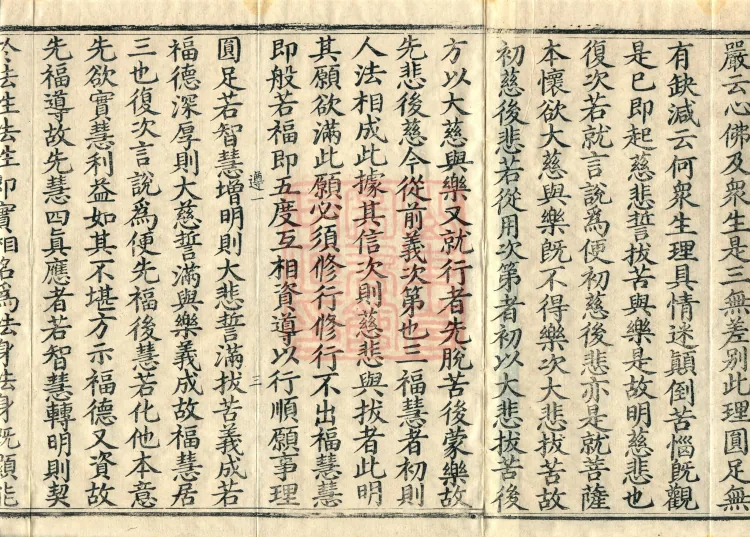 嚴云心佛及衆生是三無差別此理圓足無
有缺減云何衆生理具情迷顛倒苦惱旣觀
是已即起慈悲誓拔苦與樂是故明慈悲也
復次若就言說為便初慈後悲亦是就菩薩
本懷欲大慈與樂旣不得樂次大悲拔苦故
初慈後悲若從用次第者初以大悲拔苦後
方以大慈與樂又就行者先脫苦後蒙樂故
先悲後慈今從前義次第也三福慧者初則
人法相成此據其信次則慈悲與拔者此明
其願欲滿此願必須修行修行不出福慧慧
即般若福即五度互相資導以行順願事理
遵一 三
圓足若智慧增明則大悲誓滿拔苦義成若
福德深厚則大慈誓滿與樂義成故福慧居
三也復次言說為便先福後慧若化他本意
先欲實慧利益如其不堪方示福德又資故
先福導故先慧四眞應者若智慧轉明則契
於法性法性即實相名為法身法身旣顯能